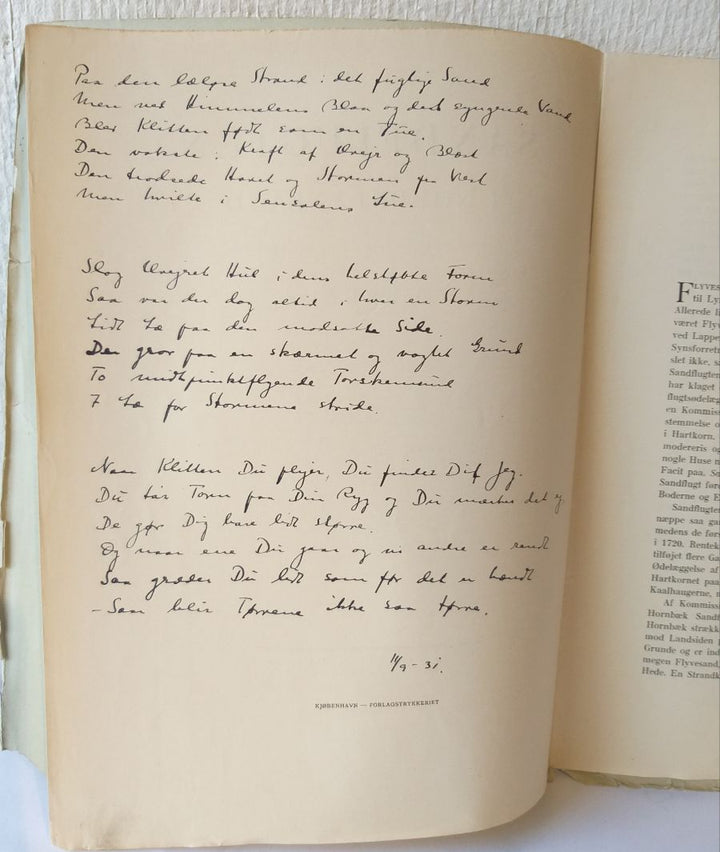 Paa den Strand i det fugtige Sand
Men ved Himmelens Blaa og det syngende Vand
Blev Klitten født som en Tue.
Den voksede i Kraft af Uvejr og Blæst
Den trodsede Havet og Stormen fra Vest
Men hvilte i Sensolens Lue.
Slog Uvejret Hul i dens helstøbte Form
Saa var der dog altid i hver en Storm
Lidt Læ paa den modsatte Side.
Der gror paa en skærmet og vogtet Grund
To
I Læ for Stormene stride.
Naar Klitten Du plejer, Du finder Dit Jeg.
Du faar Torn paa Din Ryg og Du mærker det ej
De gør Dig bare lidt større.
Og naar ene Du gaar og vi andre er rendt
Saa græder Du lidt som før det er hændt
– Saa blir Tørrene ikke saa tørre.
11/9 - 31.
KJØBENHAVN — FORLAGSTRYKKERIET
FLYVES
til Ly
Allerede li
været Flyv
ved Lappe
Synsforretn
slet ikke, sa
Sandflugten
har klaget
flugtsødelæg
en Kommiss
stemmelse o
i Hartkorn.
modereris og
nogle Huse n
Facit paa. Sa
Sandflugt før
Boderne og E
Sandflugten
næppe saa ga
medens de førs
i 1720. Rentek
tilføjet flere Ga
Ødelæggelse af
Hartkornet paa
Kaalhaugerne, n
Af Kommiss
Hornbæk Sandf
Hornbæk strækk
mod Landsiden
Grunde og er ind
megen Flyvesand.
Hede. En Strandk